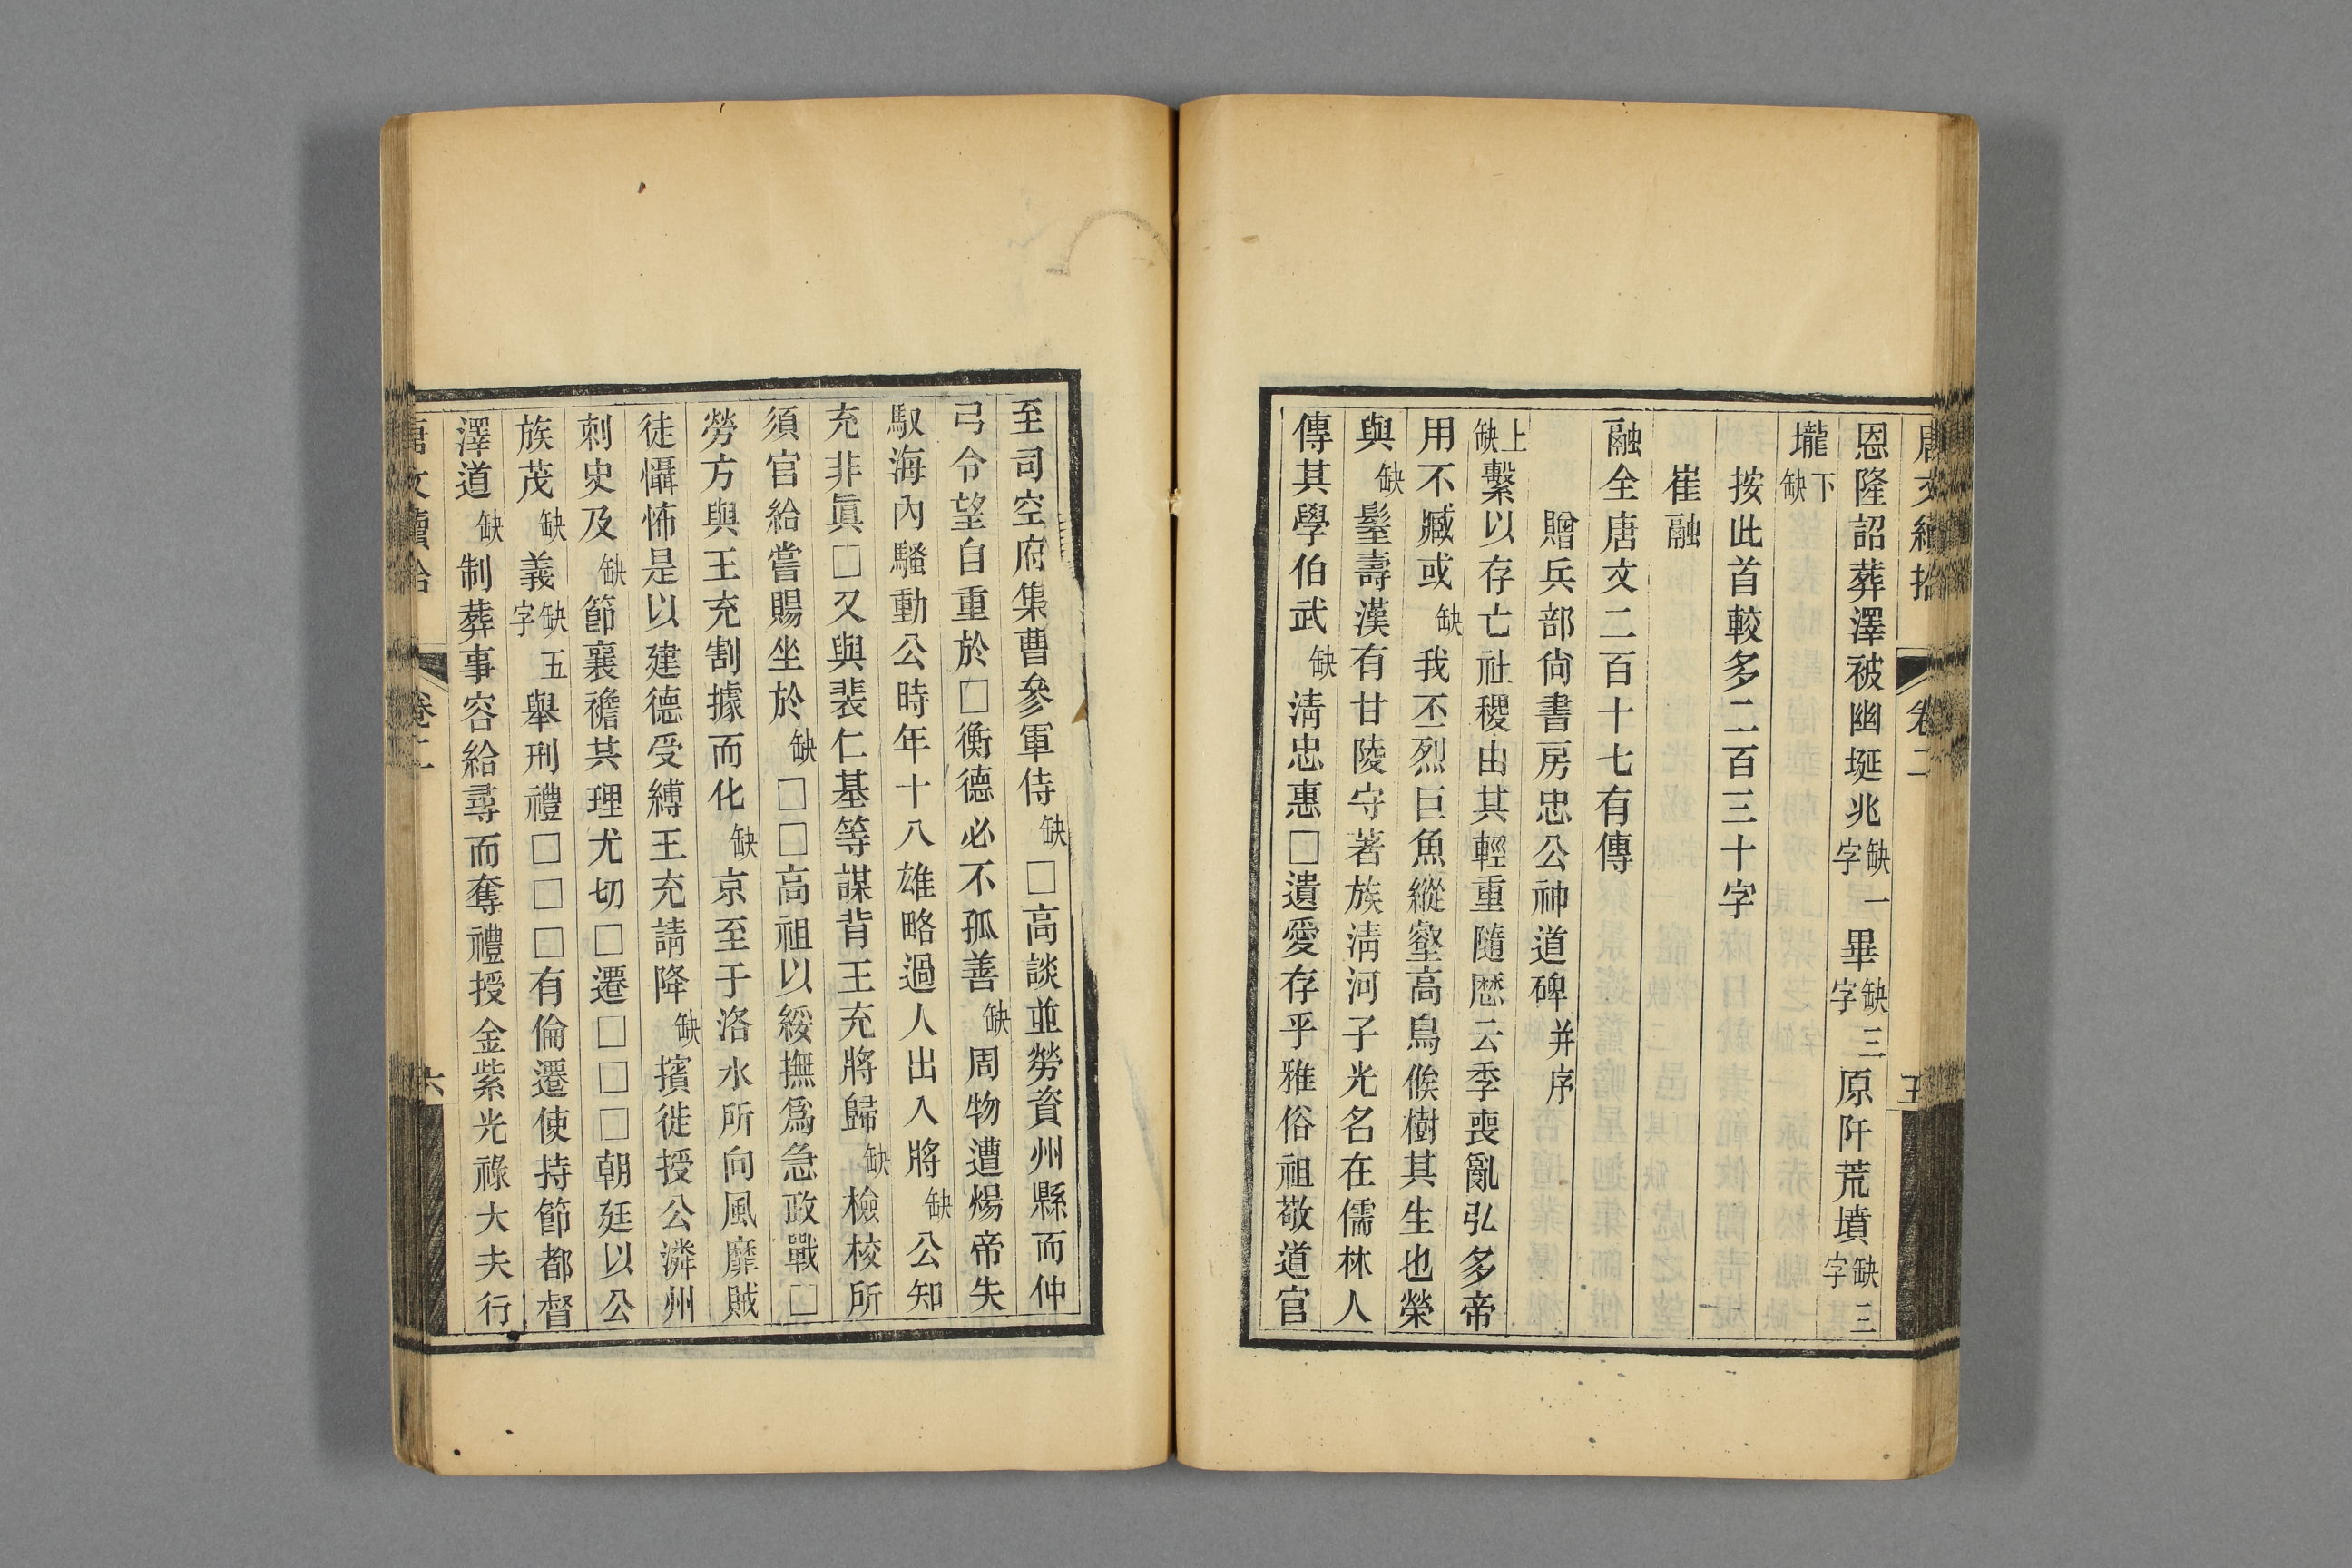 唐文續拾 卷二 五
恩隆詔葬澤被幽埏兆缺一字畢缺三字原阡荒墳缺三字
壠下缺
按此首較多二百三十字
崔融
融全唐文二百十七有傳
贈兵部尙書房忠公神道碑并序
上缺繫以存亡社稷由其輕重隨歷云季喪亂弘多帝
用不臧或缺我丕烈巨魚縱壑高鳥候樹其生也榮
與缺髦壽漢有甘陵守著族淸河子光名在儒林人
傳其學伯武缺淸忠惠□遺愛存乎雅俗祖敬道官
至司空府集曹參軍侍缺□高談並勞資州縣而仲
弓令望自重於□衡德必不孤善缺周物遭煬帝失
馭海內騷動公時年十八雄略過人出入將缺公知
充非眞□又與裴仁基等謀背王充將歸缺檢校所
須官給嘗賜坐於缺□□高祖以綏撫爲急政戰□
勞方與王充割據而化缺京至于洛水所向風靡賊
徒懾怖是以建德受縛王充請降缺擯徙授公潾州
刺史及缺節襄襜其理尤切□遷□□□朝廷以公
族茂缺義缺五字舉刑禮□□□有倫遷使持節都督
澤道缺制葬事容給尋而奪禮授金紫光祿大夫行
唐文續拾 卷二 六